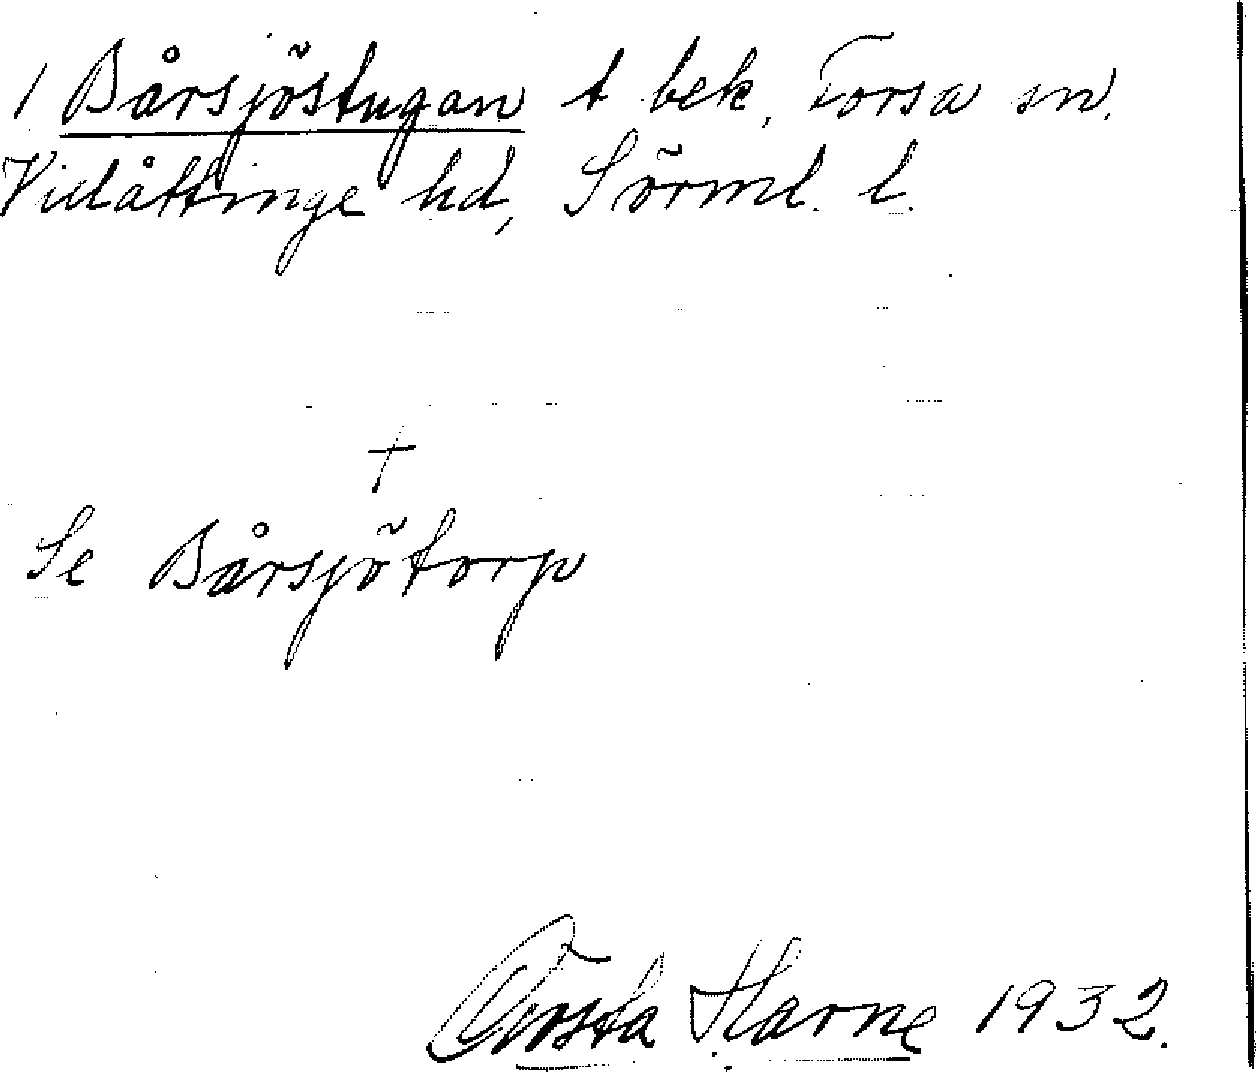 1 Bårsjöstugan t bek, Forsa sn,
Villåttinge hd, Sörml. l.
†
Se Bårsjötorp
Gösta Harne 1932.